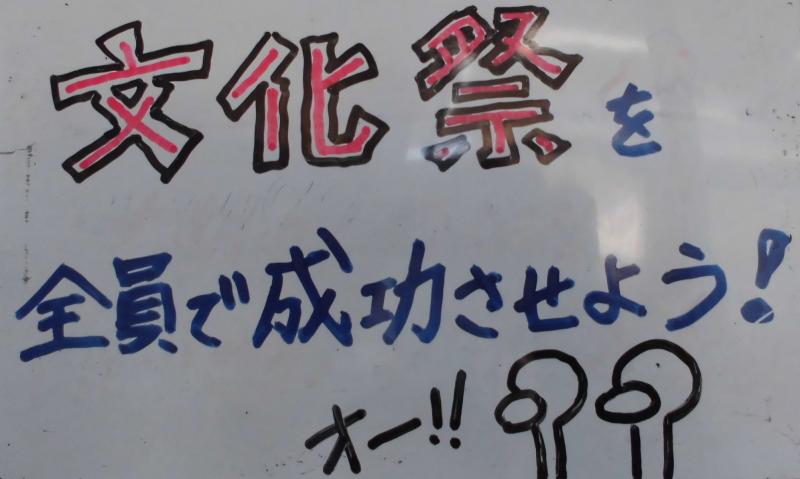 文化祭を
全員で成功させよう!
オー!!